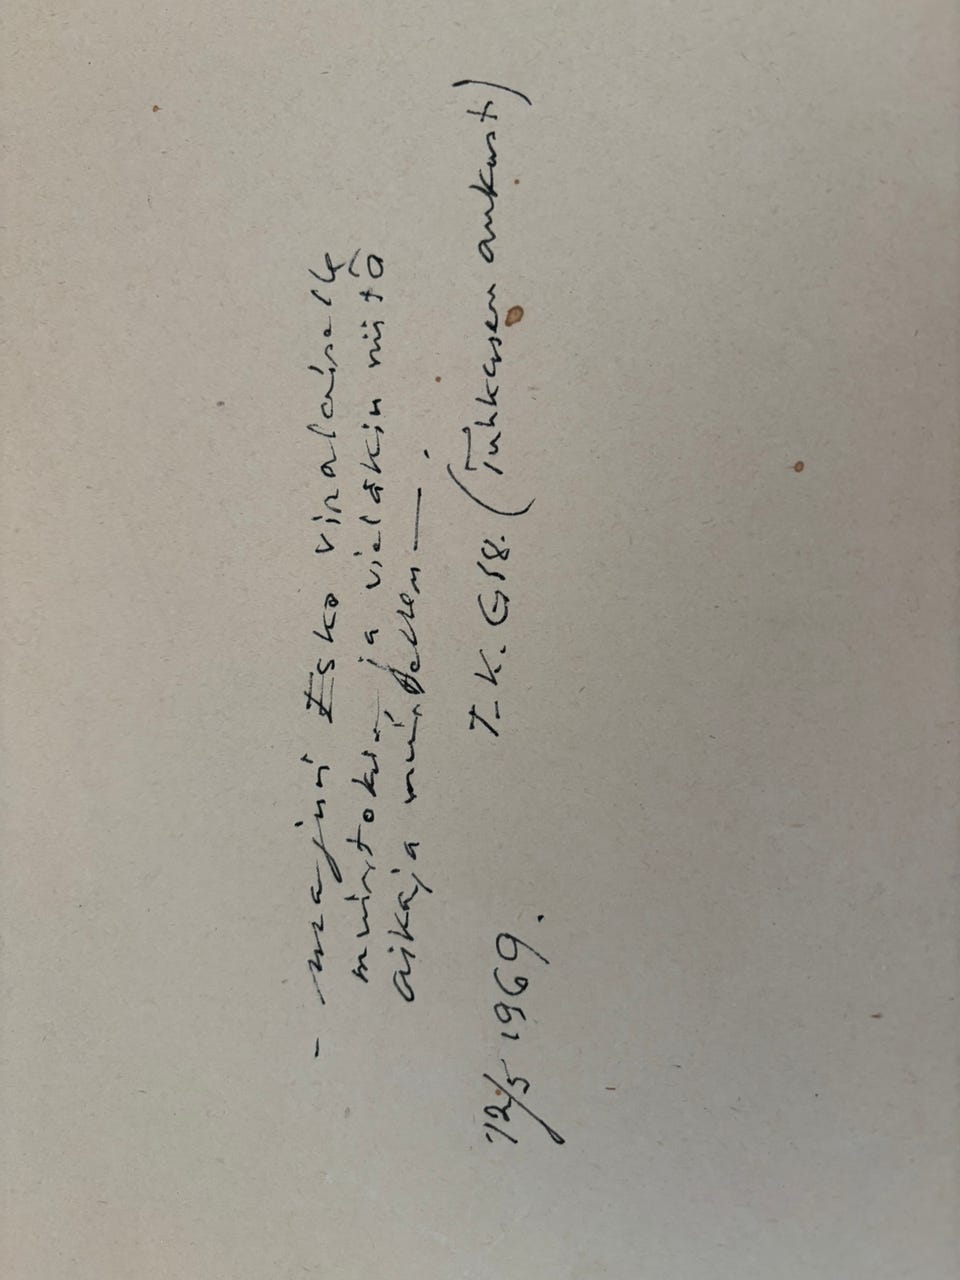 - majuri Esko virolaiselle
muistoksi ja vieläkin niitä
aikaja muistellen —.
12/5 1969. T. K. (Tuhkasen aukusti)